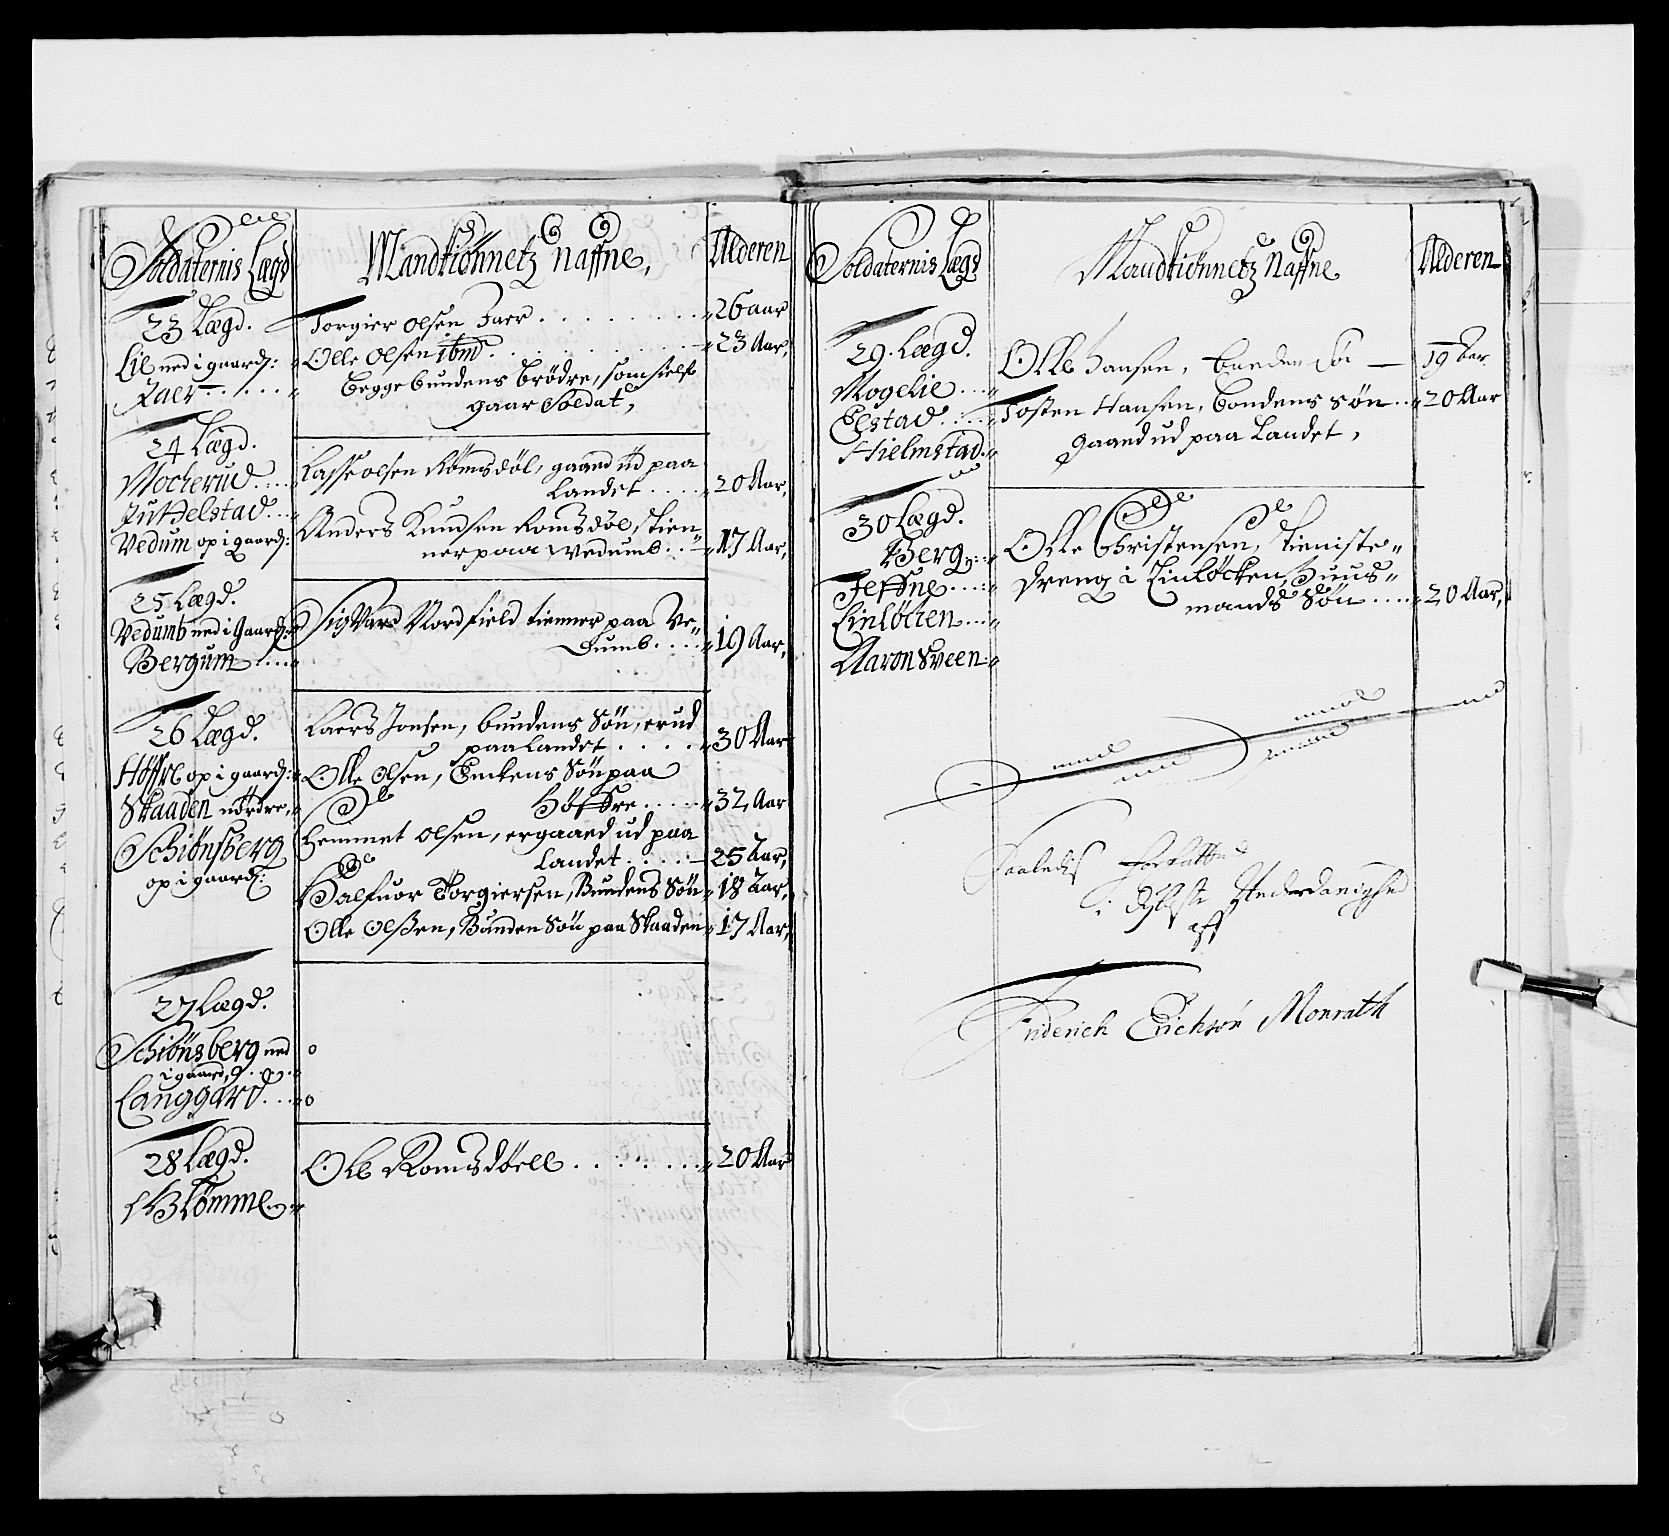 Soldaternis Lægd
Mandkiönnetz naffne,
Alderen
23 Lægd.
Lie ned i gaard:
Faer
Torgier Olsen Faer . . . . . 26 aar
Olle Olsen ibm . . . . . 23 Aar,
begge bundens brödre, som sielf
gaar Soldat,
24 Lægd.
Mocherud
Juthelstad
Vedum op i gaard:
Lasse olsen Römsdöl, gaaed üd paa
Landet . . . . 20 Aar,
Anders Knudsen Romsdöl, tien-
ner paa Wedumb . . 17 Aar,
25 Lægd.
Vedumb ned i Gaard:
Bergum
Sigvard Nordfield tienner paa Ve-
dumb . . . . 19 Aar,
26 Lægd.
Höffre op i gaard:
Skaaden nördre,
Schiönsberg
op i gaard:
Laers Jonsen, bundens Sön, er ud
paa Landet . . . . 30 Aar
Olle Olsen, Enckens Sön paa
Höffre . . . . 32, Aar
Hemmet Olsen, er gaaed ud paa
Landet . . . . 25 Aar,
Halfuor Torgiersen, Bundens Sön 18 Aar,
Olle Olsen, Bunden Sön paa Skaaden 17 Aar,
27 Lægd.
Schiönsberg ned
i gaard, . . . o
Langgard . . . o
28 Lægd.
Blömme
Ole Romsdöell . . . . . . . . 20 Aar
Soldaternis Lægd
Mandkiönnetz Naffne
Alderen
29. Lægd.
Mogelie
Elstad
Hielmstad
Olle Hansen, bunden Sön — 19 Aar.
Tosten Hansen, bondens sön . . 20 Aar
gaaed ud paa Landet,
30 Lægd.
Berg
Jeffne
Linlöchen
Aaron Sveen
Olle Christensen, tieniste-
dreng i Linlöcken, Huus-
mands Sön . . . . 20 Aar,
Saaledis forfatted
i
aff
Friderich Erichsön Monrath